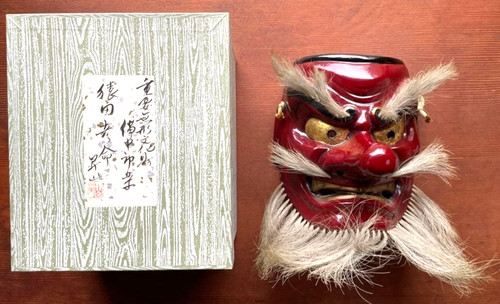 重要無形文化財
備中神楽
猿田彦命